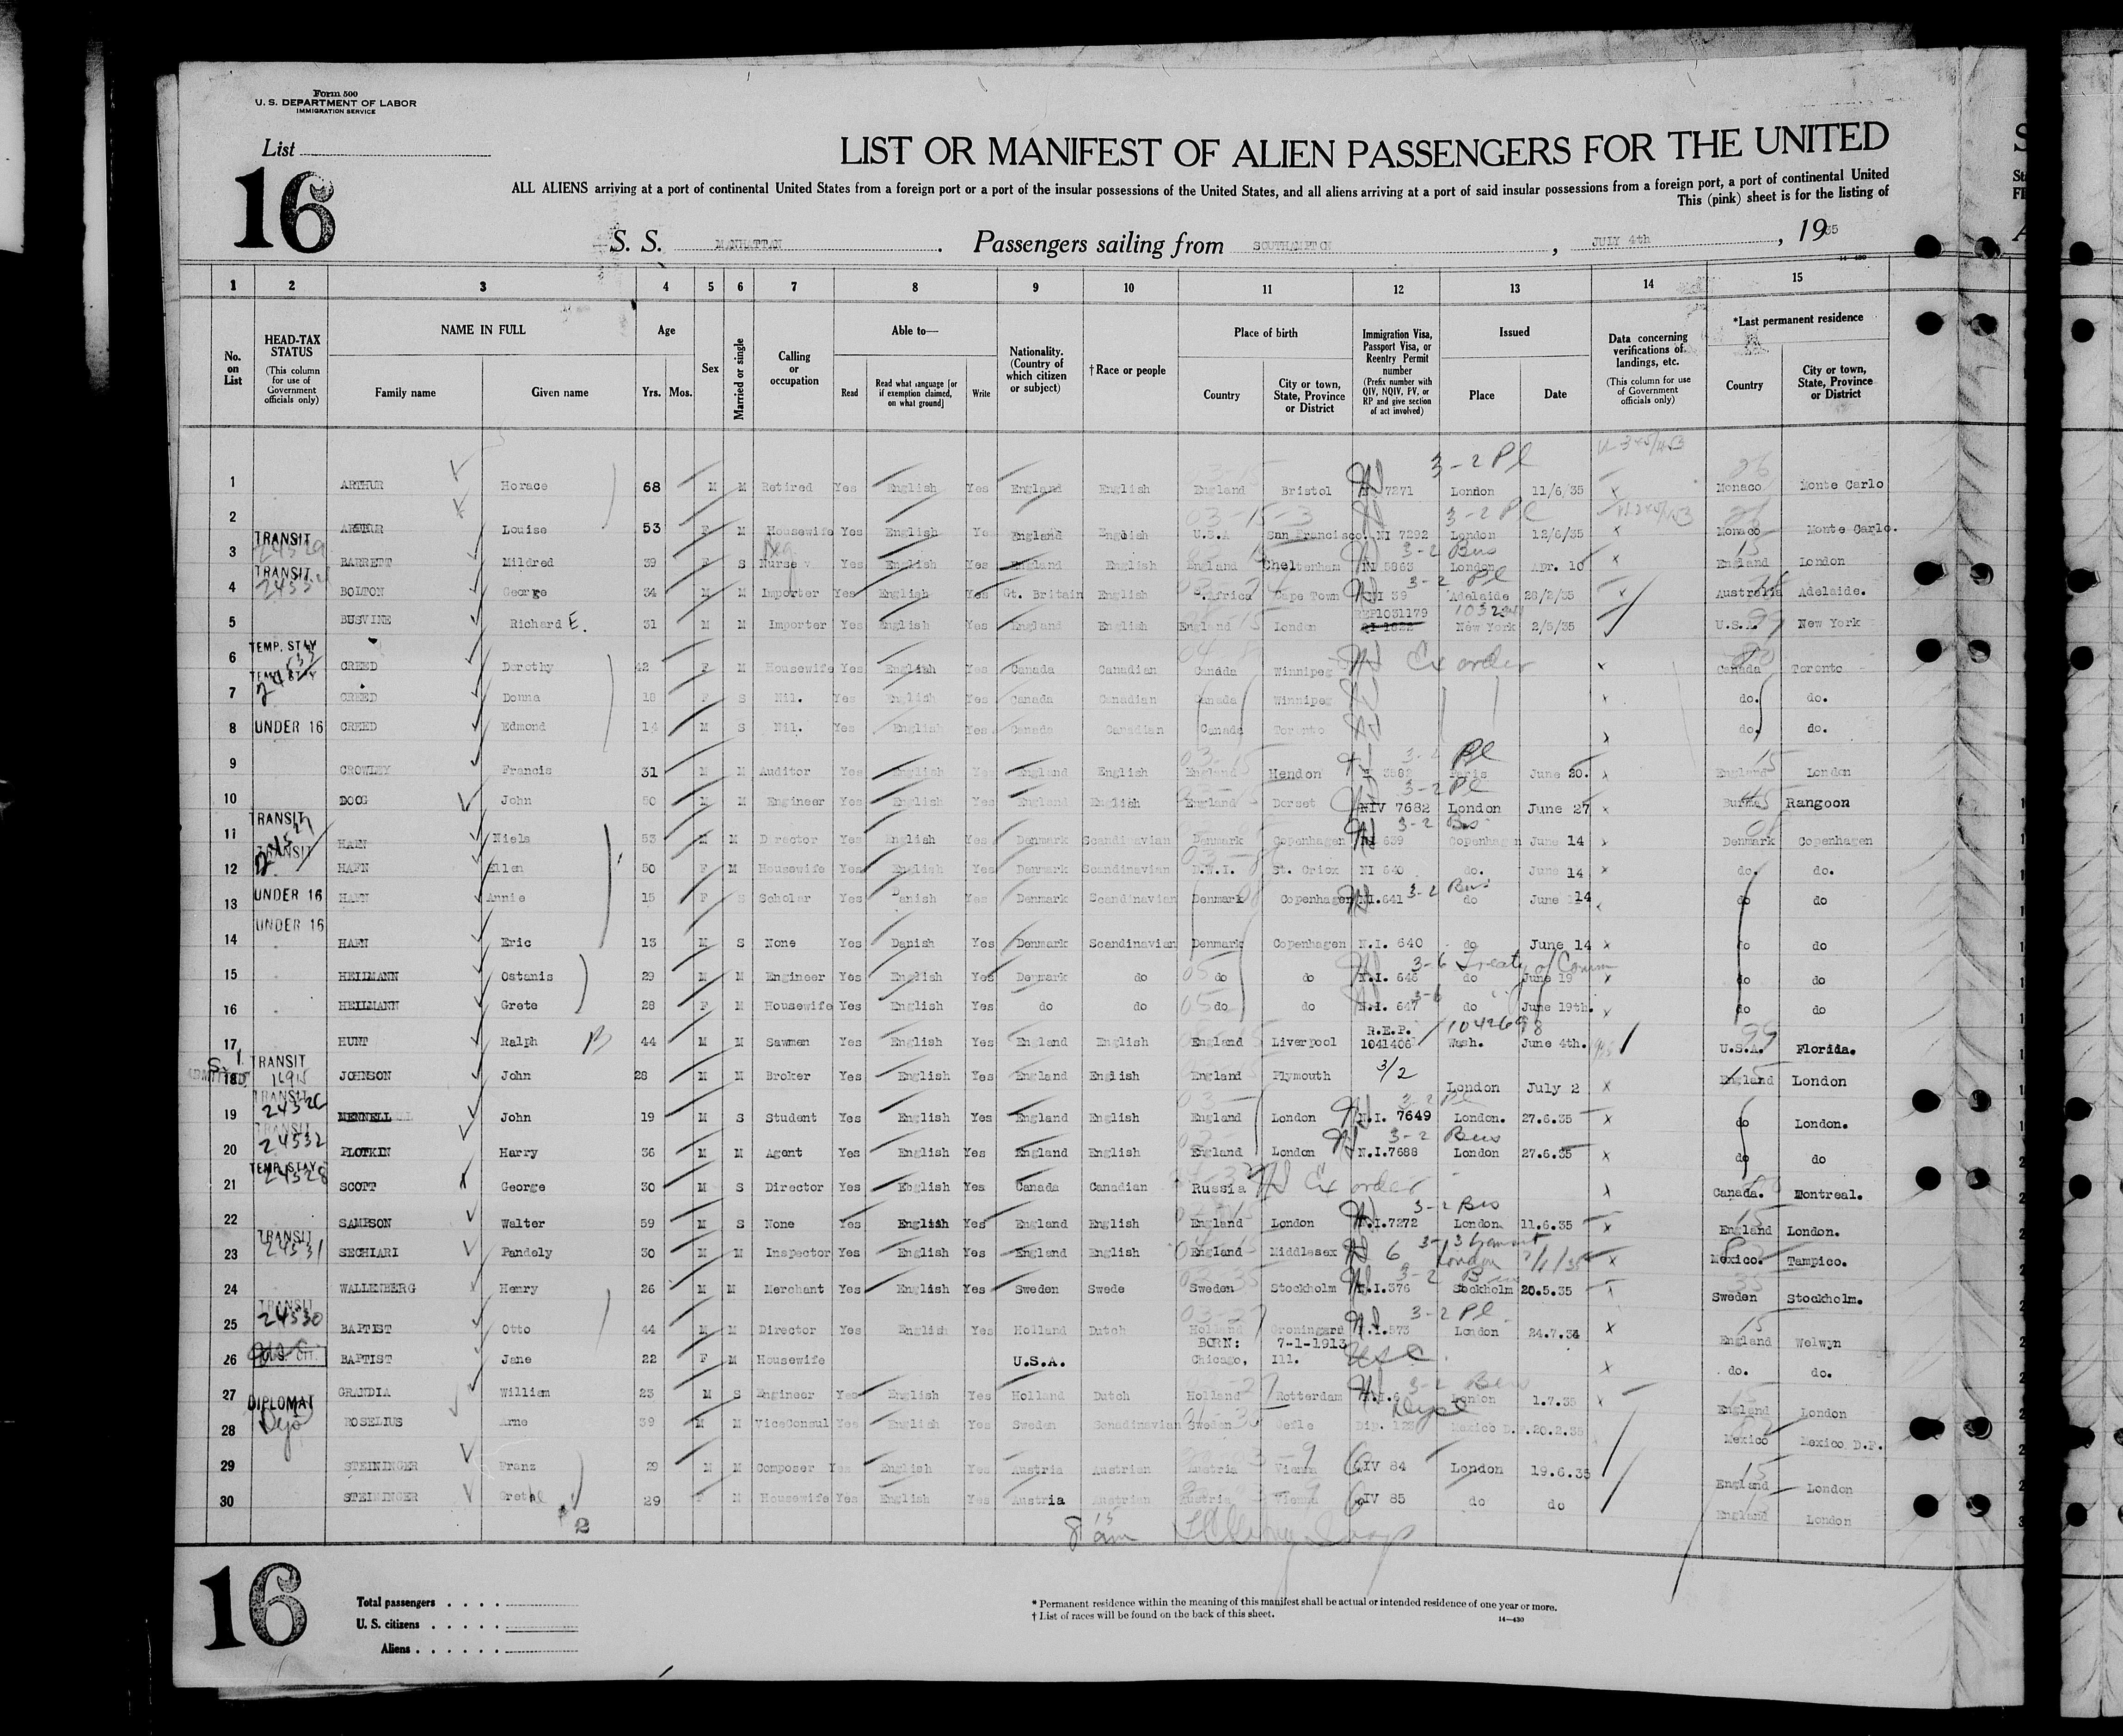 Form 500
U. S. DEPARTMENT OF LABOR
IMMIGRATION SERVICE
List
16
LIST OR MANIFEST OF ALIEN PASSENGERS FOR THE UNITED
ALL ALIENS arriving at a port of continental United States from a foreign port or a port of the insular possessions of the United States, and all aliens arriving at a port of said insular possessions from a foreign port, a port of continental United
This (pink) sheet is for the listing of
S. S. MANHATTAN . Passengers sailing from SOUTHAMPTON , JULY 4th , 1935
14-430
1 2 3 4 5 6 7 8 9 10 11 12 13 14 15
No. on List
HEAD-TAX STATUS (This column for use of Government officials only)
NAME IN FULL
Family name Given name
Age
Yrs. Mos.
Sex
Married or single
Calling or occupation
Able to—
Read Read what language [or if exemption claimed, on what ground] Write
Nationality. (Country of which citizen or subject)
†Race or people
Place of birth
Country City or town, State, Province or District
Immigration Visa, Passport Visa, or Reentry Permit number (Prefix number with QIV, NQIV, PV, or RP and give section of act involved)
Issued
Place Date
Data concerning verifications of landings, etc. (This column for use of Government officials only)
*Last permanent residence
Country City or town, State, Province or District
3-2 Pl
1 ARTHUR Horace 68 M M Retired Yes English Yes England English England Bristol 7271 London 11/6/35 x Monaco Monte Carlo
3-2 Pl
2 ARTHUR Louise 53 F M Housewife Yes English Yes England English U.S.A San Francisco. NI 7292 London 12/6/35 x Monaco Monte Carlo.
TRANSIT 24529 3-2 Bus
3 BARRETT Mildred 39 F S Nurse Yes English Yes England English England Cheltenham NI 5863 London Apr. 10 x England London
TRANSIT 3-2 Pl
4 BOLTON George 34 M M Importer Yes English Yes Gt. Britain English S.Africa Cape Town NI 39 Adelaide 28/2/35 x Australia Adelaide.
5 BUSVINE Richard E. 31 M M Importer Yes English Yes England English England London REP1031179 New York 2/5/35 U.S.A. New York
TEMP. STAY
6 CREED Dorothy 42 F M Housewife Yes English Yes Canada Canadian Canada Winnipeg Ex order x Canada Toronto
TEMP. STAY
7 CREED Donna 18 F S Nil. Yes English Yes Canada Canadian Canada Winnipeg x do. do.
8 UNDER 16 CREED Edmond 14 M S Nil. Yes English Yes Canada Canadian Canada Toronto x do. do.
3-2 Pl
9 CROWLEY Francis 31 M M Auditor Yes English Yes England English England Hendon 3582 Paris June 20. x England London
3-2 Pl
10 DOOG John 50 M M Engineer Yes English Yes England English England Dorset NIV 7682 London June 27 x Burma Rangoon
TRANSIT 3-2 Bus
11 HAEN Niels 53 M M Director Yes English Yes Denmark Scandinavian Denmark Copenhagen NI 639 Copenhagen June 14 x Denmark Copenhagen
TRANSIT
12 HAEN Ellen 50 F M Housewife Yes English Yes Denmark Scandinavian D.W.I. St. Criox NI 640 do. June 14 x do. do.
3-2 Bus
13 UNDER 16 HAEN Annie 15 F S Scholar Yes Danish Yes Denmark Scandinavian Denmark Copenhagen N.I.641 do June 14 do do
UNDER 16
14 HAEN Eric 13 M S None Yes Danish Yes Denmark Scandinavian Denmark Copenhagen N.I. 640 do June 14 x do do
3-6 Treaty of Comm
15 HEILMANN Ostanis 29 M M Engineer Yes English Yes Denmark do do do N.I. 646 do June 19 x do do
3-6
16 HEILMANN Grete 28 F M Housewife Yes English Yes do do do do N.I. 647 do June 19th. x do do
17 HUNT Ralph 44 M M Sawmen Yes English Yes England English England Liverpool R.E.P. 1041406 Wash. June 4th. U.S.A. Florida.
TRANSIT
18 JOHNSON John 28 M M Broker Yes English Yes England English England Plymouth 3/2 London July 2 x England London
TRANSIT 3-2 Pl
19 MENNELL John 19 M S Student Yes English Yes England English England London N.I. 7649 London. 27.6.35 x do London.
TRANSIT 24532 3-2 Bus
20 PLOTKIN Harry 36 M M Agent Yes English Yes England English England London N.I.7688 London 27.6.35 x do do
TEMP. STAY 24528
21 SCOTT George 30 M S Director Yes English Yes Canada Canadian Russia Ex order x Canada. Montreal.
3-2 Bus
22 SAMPSON Walter 59 M S None Yes English Yes England English England London N.I.7272 London 11.6.35 x England London.
TRANSIT 24531 3-3 transit
23 SECHIARI Pandely 30 M M Inspector Yes English Yes England English England Middlesex 6 London x Mexico. Tampico.
3-2 Bus
24 WALLENBERG Henry 26 M M Merchant Yes English Yes Sweden Swede Sweden Stockholm N.I.376 Stockholm 20.5.35 Sweden Stockholm.
TRANSIT 24530 3-2 Pl
25 BAPTIST Otto 44 M M Director Yes English Yes Holland Dutch Holland N.I.573 London 24.7.34 x England Welwyn
BORN: 7-1-1913
26 U.S. CIT. BAPTIST Jane 22 F M Housewife U.S.A. Chicago, Ill. USC. x do. do.
3-2 Bus
27 GRANDIA William 23 M S Engineer Yes English Yes Holland Dutch Holland Rotterdam London 1.7.35 x England London
DIPLOMAT
28 ROSELIUS Arne 39 M M ViceConsul Yes English Yes Sweden Scandinavian Sweden Gefle Mexico D. 20.2.35 Mexico Mexico D.F.
29 STEININGER Franz 29 M M Composer Yes English Yes Austria Austrian Austria Vienna QIV 84 London 19.6.35 England London
30 STEININGER Grethe 29 F M Housewife Yes English Yes Austria Austrian Austria Vienna QIV 85 do do England London
2
8 15 am
16
Total passengers . . . .
U. S. citizens . . . . .
Aliens . . . . . .
* Permanent residence within the meaning of this manifest shall be actual or intended residence of one year or more.
† List of races will be found on the back of this sheet.
14—430